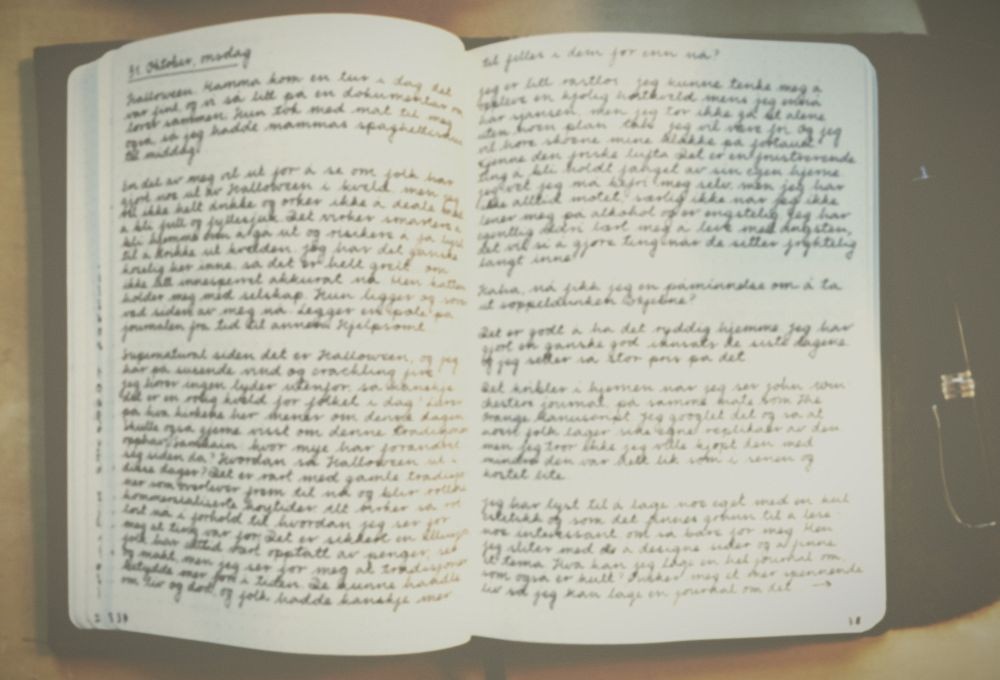 31. Oktober, onsdag
Halloween. Mamma kom en tur i dag, det
var fint og vi så litt på en dokumentar om
sammen. Hun tok med mat til meg
også, så jeg hadde mammas spaghetti
til middag.
En del av meg vil ut for å se om folk har
gjort noe ut av Halloween i kveld, men jeg
vil ikke helt drikke og orker ikke å deale
å bli full og fyllesjuk. Det virker smartere å
bli hjemme enn å gå ut og risikere å få lyst
til å drikke ut kvelden. Jeg har det ganske
koselig her inne, så det er helt greit om
ikke litt innesperret akkurat nå. Men katten
holder meg med selskap. Hun ligger og sover
ved siden av meg nå. Legger en pote på
journalen fra tid til annen. Hjelpsomt.
Supernatural siden det er Halloween, og jeg
hør på susende vind og crackling fire
jeg hører ingen lyder utenfor, så kanskje
det er en rolig kveld for folket i dag.
på hva kirkene her mener om denne dagen
Skulle også gjerne visst om denne tradisjonen
opphav, Samhain, hvor mye har forandret
seg siden da? Hvordan så Halloween ut i
disse dager? Det er rart med gamle tradisjo
ner som overlever frem til nå og blir
kommersialiserte høytider. Alt virker så
lost nå i forhold til hvordan jeg ser for
meg at ting var før. Det er sikkert en illusjon
folk har alltid vært opptatt av penger,
og makt, men jeg ser for meg at tradisjoner
betydde mer før i tiden. De kunne handle
om liv og død, og folk hadde kanskje mer
til felles i dem før enn nå?
Jeg er litt rastløs. Jeg kunne tenke meg å
oppleve en kjølig høstkveld mens jeg ennå
har sjansen, men jeg tør ikke gå ut alene
uten noen plan. Jeg vil være fri og jeg
vil høre skoene mine klakke på fortauet,
kjenne den friske lufta. Det er en frustrerende
ting å bli holdt fanget av sin egen hjerne.
Jeg vet jeg må befri meg selv, men jeg har
ikke alltid motet, særlig ikke når jeg ikke
lener meg på alkohol og er engstelig. Jeg har
egentlig aldri lært meg å leve med angsten,
det vil si å gjøre ting når de sitter fryktelig
langt inne.
Haha, nå fikk jeg en påminnelse om å ta
ut soppelbunken. Skjebne?
Det er godt å ha det ryddig hjemme. Jeg har
gjort en ganske god innsats de siste dagene,
og jeg setter så stor pris på det.
Det kribler i hjernen når jeg ser John Win-
chesters journal, på samme måte som The
Orange Manuscript. Jeg googlet det og så at
noen folk lager sine egne replikaer av den,
men jeg tror ikke jeg ville kjøpt den med
mindre den var helt lik som i serien og
kostet lite.
Jeg har lyst til å lage noe eget med en kul
estetikk og som det finnes grunn til å lese
noe interessant om så bare for meg. Men
jeg sliter med å designe sider og å finne
et tema. Hva kan jeg lage en hel journal om
som også er kult? Ønsker meg et mer spennende
liv så jeg kan lage en journal om det →
18